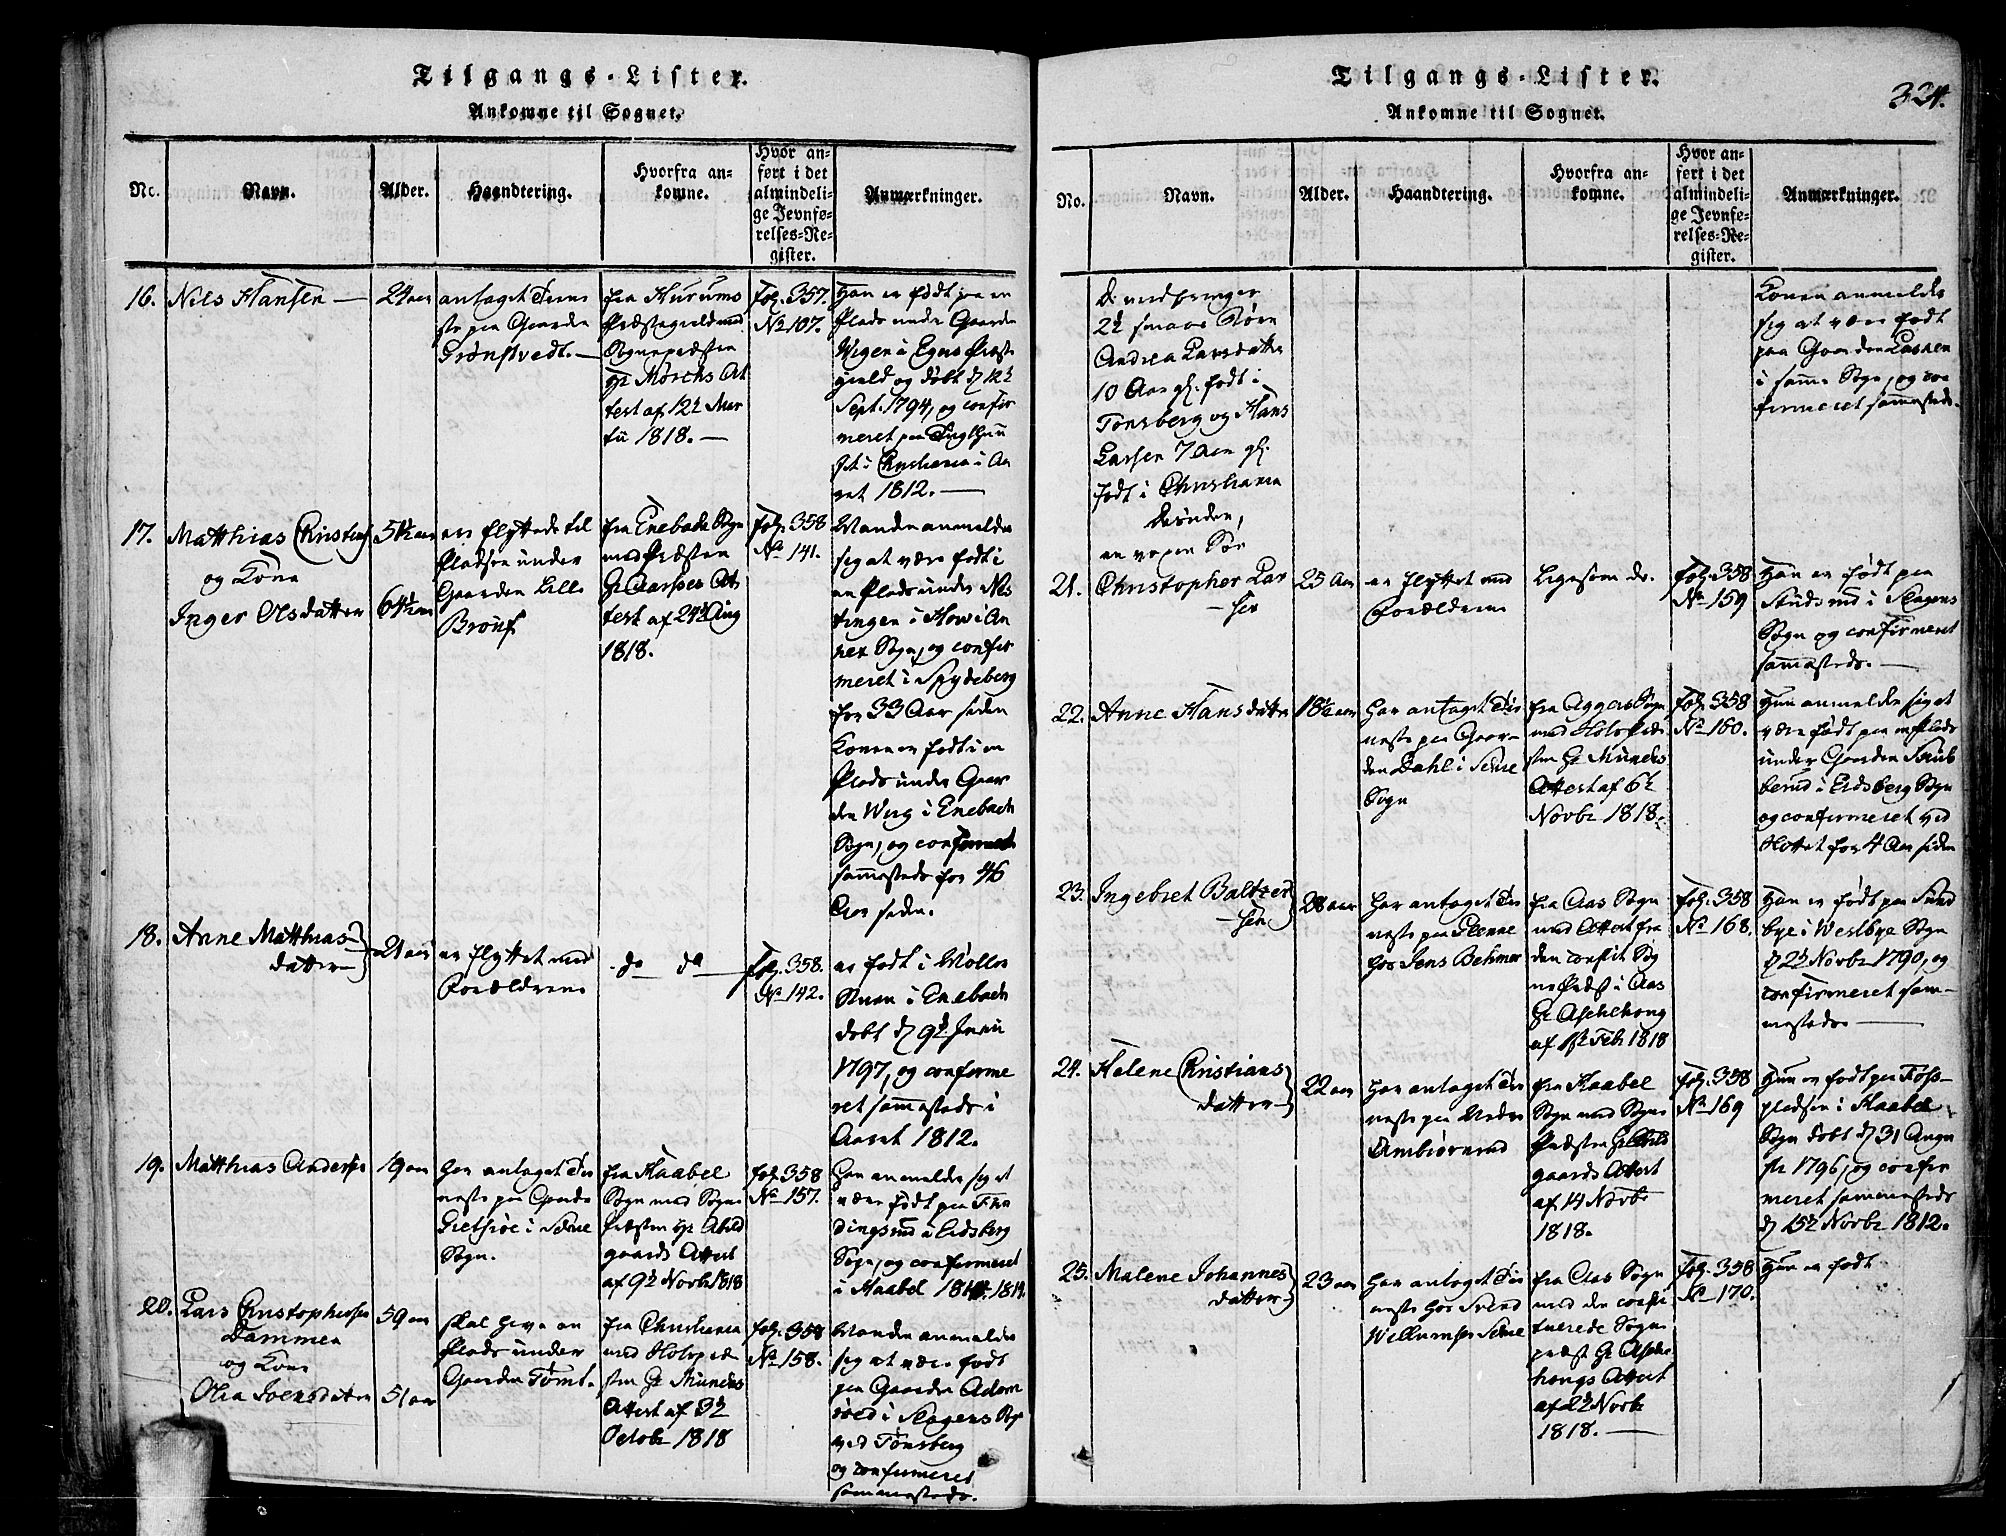 Tilgangs-Lister.
Ankomne til Sognet.
No.
Navn.
Alder.
Haandtering.
Hvorfra an-
komne.
Hvor an-
ført i det
almindeli-
ge Jevnfø-
relses-Re-
gister.
Anmærkninger.
16.
Nils Hansen
24 aar
antaget Tiene
ste paa Gaarden
Grønstvedt.
fra Hurums
Præstegield med
Sognepræsten
Hr Mørchs At
test af 12te Mar
tii 1818.
Fol. 357.
No 107.
Han er født paa en
Plads under Gaarden
Wigen i Egers Præste
gield og døbt d 12te
Sept. 1794, og confir
meret paa Tugthuu
set i Christiania i Aa
ret 1812.
17.
Matthias Christens
og Kone
Inger Olsdatter
54½ aar
64½ aar
ere flyttede til
Pladsen under
Gaarden Lille
Brøuf
fra Enebak Sogn
med Præsten
Hr Aarsses At
test af 24de Aug
1818.
Fol. 358
No 141.
Manden anmelder
sig at være født i
en Plads under Nes
tingen i How i An
nex Sogn, og confir
meret i Spydeberg
for 33 Aar siden
Konen er født i en
Plads under Gaar
den Werg i Enebach
Sogn, og confirmeret
sammesteds for 46
Aar siden.
18.
Anne Matthias-
datter
21 aar
er flyttet med
Forældrene
do do
Fol. 358.
No 142.
er født i Møller
Stuen i Enebach
døbt d 9de Junii
1797, og confirme
ret sammesteds i
Aaret 1812.
19.
Matthias Anderse
19 aar
har antaget Tie
neste paa Gaarden
Gretsiøe i Seine
Sogn.
fra Haabel
Sogn med Sogne
Præsten Hr Abild
gaards Attest
af 9de Novbr 1818
Fol. 358
No 157.
Han anmelder sig at
være født paa Fra
dingsrud i Eidsberg
Sogn, og confirmeret
i Haabel 1814.
20.
Lars Christophersen
Dammen
og Kone
Olia Joensdatter
59 aar
51 aar
skal have en
Plads under
Gaarden Tømt.
fra Christiania
med Holspræ
sten Hr Munchs
Attest af 3de
Octobr 1818
Fol. 358
No 158.
Manden anmelder
sig at være født
paa Gaarden Adam
rød i Slagens Sogn
ved Tønsberg
og confirmeret
sammesteds.
Tilgangs-Lister.
Ankomne til Sognet.
324.
No.
Navn.
Alder.
Haandtering.
Hvorfra an-
komne.
Hvor an-
ført i det
almindeli-
ge Jevnfø-
relses-Re-
gister.
Anmærkninger.
De medbringer
2de smaae Børn
Andrea Larsdatter
10 Aar gl. født i
Tønsberg og Hans
Larsen 7 Aar gl.
født i Christiania
desuden,
en voxen Søn
Konen anmelder
sig at være født
paa Gaarden Lasken
i samme Sogn, og con
firmeret sammesteds.
21.
Christopher Lar
sen
25 Aar
er flyttet med
Forældrene
Ligesom do.
Fol. 358
No 159
Han er født paa
Studsrud i Slagens
Sogn og confirmeret
sammesteds.
22.
Anne Hansdatter
18½ aar
har antaget Tie
neste paa Gaar-
den Dahl i Seine
Sogn
fra Aggers Sogn
med Holspræ
sten Hr Munchs
Attest af 6te
Novbr 1818.
Fol. 358
No 160.
Hun anmelder sig at
være født paa en Plads
under Gaarden Skub
berud i Eidsberg Sogn
og confirmeret ved
Slottet for 4 Aar siden
23.
Ingebret Baltzer
sen
28 aar
har antaget Tie
neste paa Glenne
hos Jens Behmer
fra Aas Sogn
med Attest fra
den constit Sog
ne Præst i Aas
Hr Aschehoug
af 1ste Feb 1818
Fol. 358
No 168.
Han er født paa Sund
bye i Westbye Sogn
d 2de Novbr 1790, og
confirmeret sam-
mesteds
24.
Helene Christians
datter
22 aar
har antaget Tie
neste paa Nedre
Ambiørnrud
fra Haabel
Sogn med Sogne
Præsten Hr Abild
gaards Attest
af 14 Novbr
1818.
Fol. 358
No 169
Hun er født paa Foss-
pladsen i Haabel
Sogn døbt d 31 Augu
sti 1796, og confir
meret sammesteds
d 15de Novbr 1812.
25.
Malene Johannes
datter
23 aar
har antaget Tie
neste hos Svend
Willumsen Seine
fra Aas Sogn
med den consti
tuerede Sogne
præst Hr Asche
hougs Attest
af 2de Novbr
1818.
Fol. 358
No 170.
Hun er født